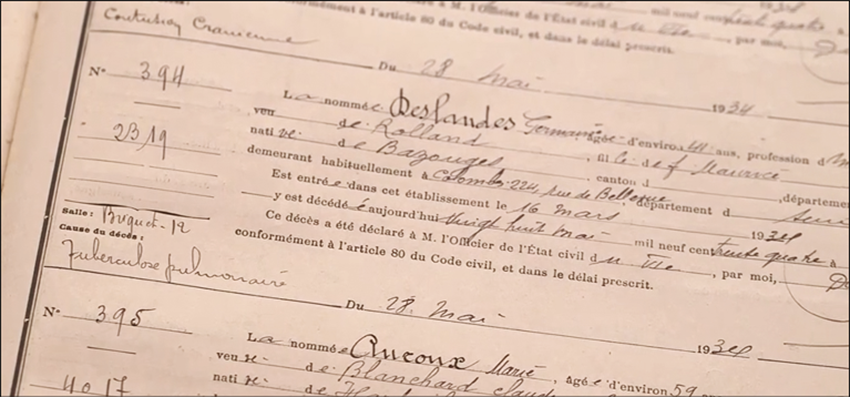 1934
conformément à l'article 80 du Code civil, et dans le délai prescrit.
Contusion Cranienne
Du 28 Mai 1934
N° 394
2319
La nommée Deslandes Germaine, âgée d'environ 41 ans, profession d
veu de Rolland, fille de f Maurice
native de Bazouges, canton d
demeurant habituellement à Colombes 224, rue de Bellevue, département
Est entrée dans cet établissement le 16 mars, département d Seine
y est décédée aujourd'hui Vingt huit Mai 1934
Ce décès a été déclaré à M. l'Officier de l'État civil du VIe mil neuf cent trente quatre à
conformément à l'article 80 du Code civil, et dans le délai prescrit. , par moi,
Salle: Briquet-12
Cause du décès:
Tuberculose pulmonaire
Du 28 Mai 1934
N° 395
4017
La nommée Aucoux Marie, âgée d'environ 59
veuve de Blanchard Claude
native de